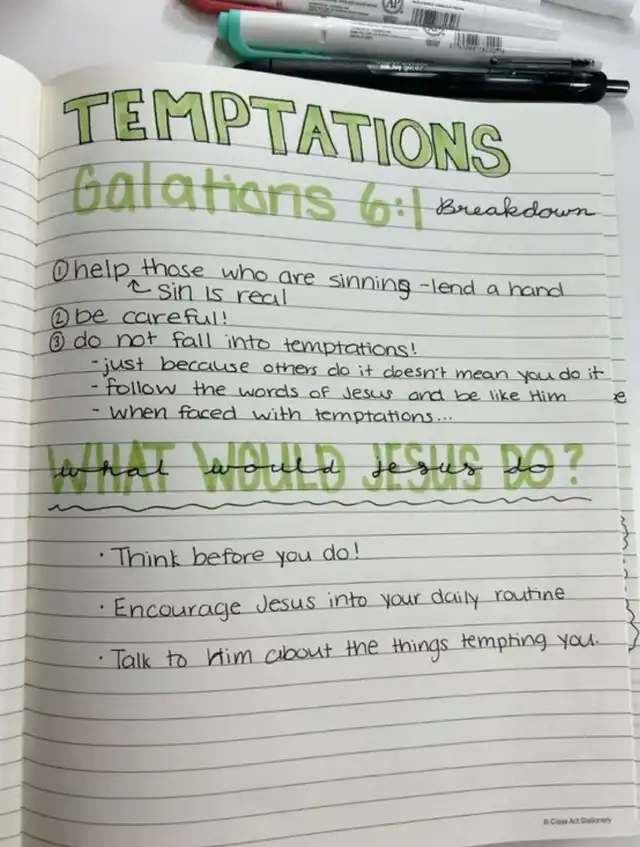 TEMPTATIONS
Galations 6:1 Breakdown
① help those who are sinning - lend a hand
↑ sin is real
② be careful!
③ do not fall into temptations!
- just because others do it doesn't mean you do it
- follow the words of Jesus and be like Him
- when faced with temptations...
WHAT WOULD JESUS DO?
what would jesus do
· Think before you do!
· Encourage Jesus into your daily routine
· Talk to Him about the things tempting you.
© Class Act Stationery